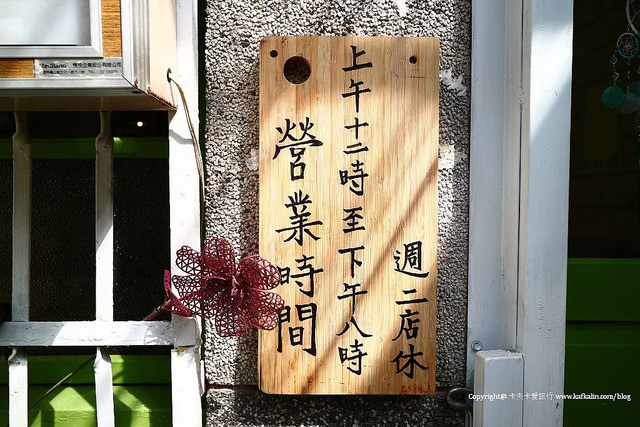 營業時間
上午十二時至下午八時
週二店休
Copyright@ 卡夫卡愛旅行 www.kafkalin.com/blog